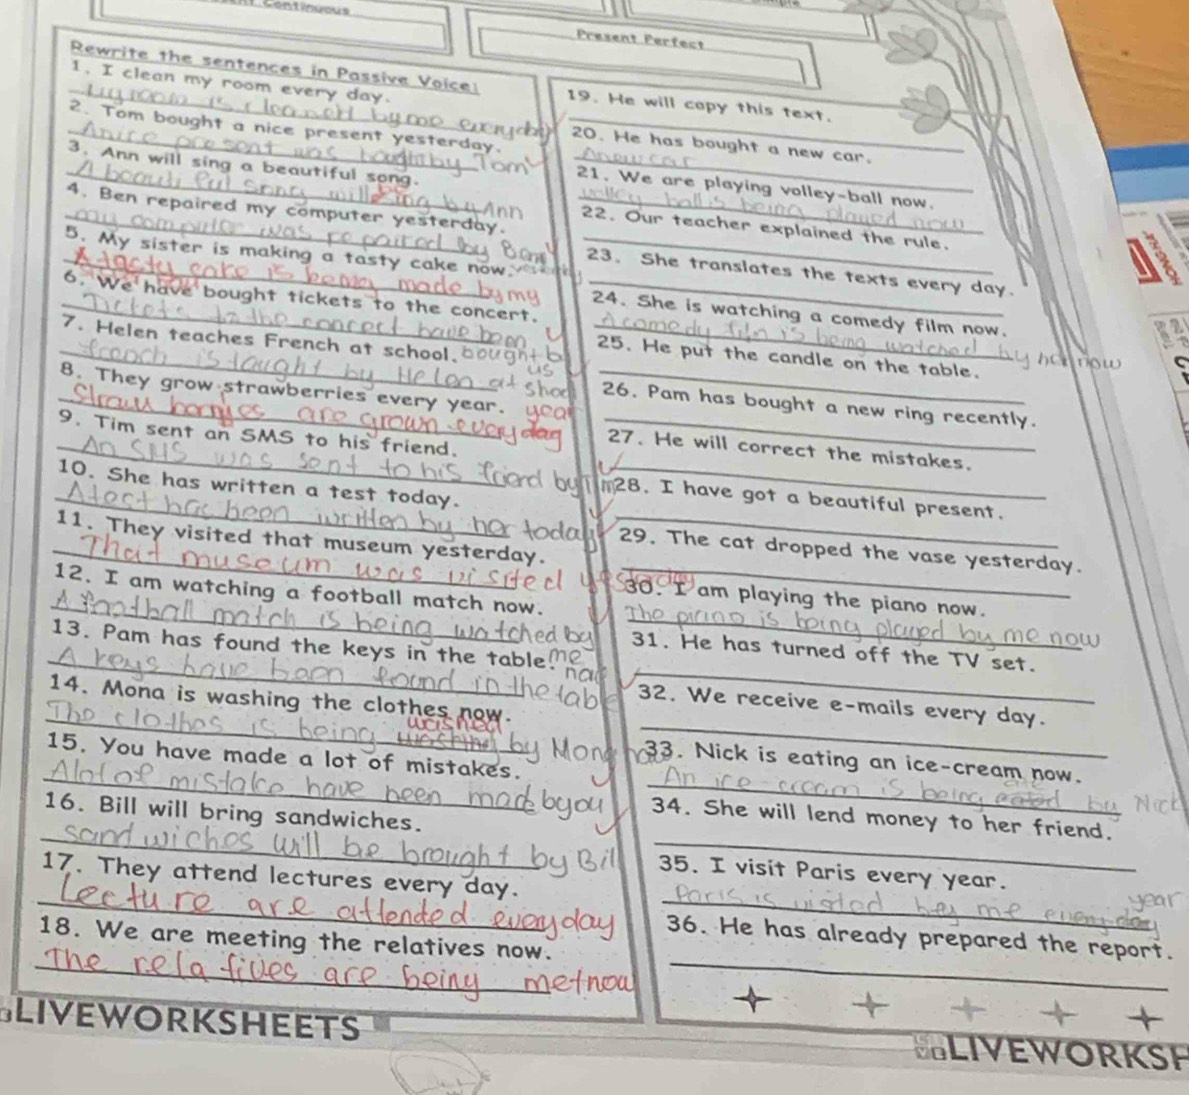 Continuous
Present Perfect
Rewrite the sentences in Passive Voice
1. I clean my room every day.
by me everyday
2. Tom bought a nice present yesterday.
A nice present was bought by Tom
3. Ann will sing a beautiful song.
by Ann
4. Ben repaired my computer yesterday.
my computer was repaired by Ben
5. My sister is making a tasty cake now.
A tasty cake is being made by my
6. We have bought tickets to the concert.
Tictets to the concert have been
7. Helen teaches French at school. bought by
us
french is taught by Helen at shool
8. They grow strawberries every year.
are grown every day year
9. Tim sent an SMS to his friend.
An SMS was sent to his friend by Tim
10. She has written a test today.
A test has been written by her today
11. They visited that museum yesterday.
That museum was visited yesterday
12. I am watching a football match now.
A football match is being watched by
me
13. Pam has found the keys in the table.
A keys have been found in the table
14. Mona is washing the clothes now.
washed
The clothes is being washing by Mona now
15. You have made a lot of mistakes.
A lot of mistake have been made by you
16. Bill will bring sandwiches.
sandwiches will be brought by Bill
17. They attend lectures every day.
Lecture are attended everyday
18. We are meeting the relatives now.
The relatives are being met now
LIVEWORKSHEETS
19. He will copy this text.
20. He has bought a new car.
A new car
21. We are playing volley-ball now.
volley ball is being played now
22. Our teacher explained the rule.
23. She translates the texts every day.
24. She is watching a comedy film now.
A comedy film is being watched by her now
25. He put the candle on the table.
26. Pam has bought a new ring recently.
27. He will correct the mistakes.
28. I have got a beautiful present.
29. The cat dropped the vase yesterday.
30. I am playing the piano now.
The piano is being played by me now
31. He has turned off the TV set.
32. We receive e-mails every day.
33. Nick is eating an ice-cream now.
An ice-cream is being eated by Nick
34. She will lend money to her friend.
35. I visit Paris every year.
year
Paris is visted by me every day
36. He has already prepared the report.
LIVEWORKSH